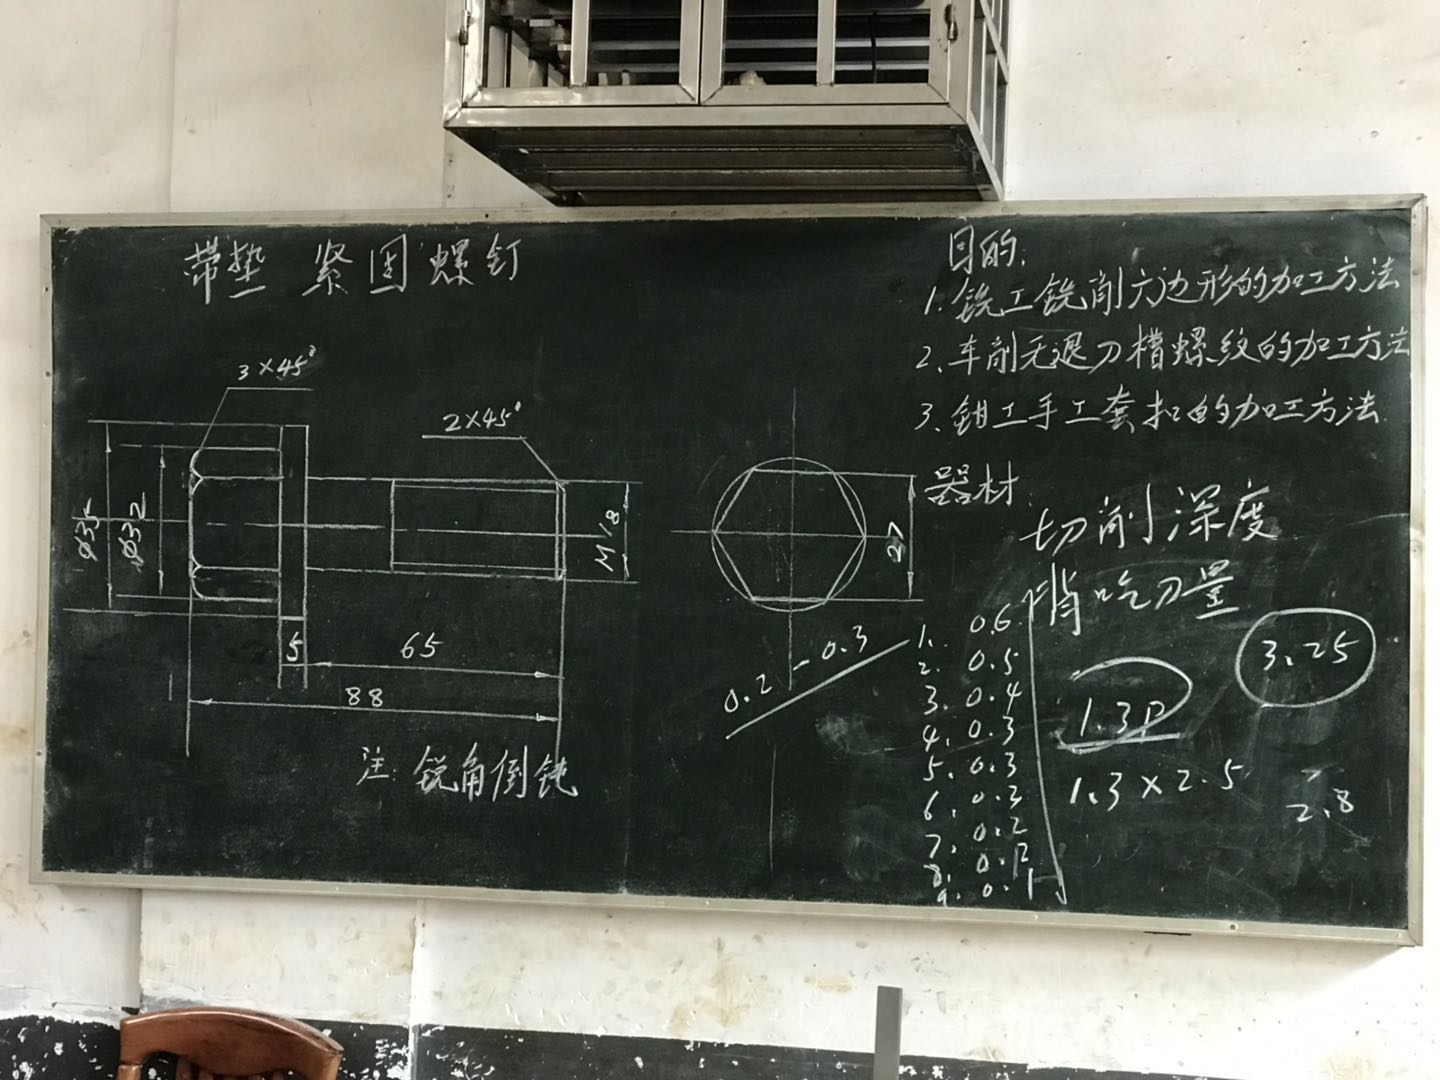 带垫 紧固螺钉
3×45°
2×45°
ø35
ø32
M18
5
65
88
注:锐角倒钝
27
0.2-0.3
目的:
1.铣工铣削六边形的加工方法
2.车削无退刀槽螺纹的加工方法
3.钳工手工套扣的加工方法
器材
切削深度
吃刀量
1. 0.6
2. 0.5
3. 0.4
4. 0.3
5. 0.3
6. 0.3
7. 0.2
8. 0.12
9. 0.1
1.3P
1.3×2.5
3.25
2.8